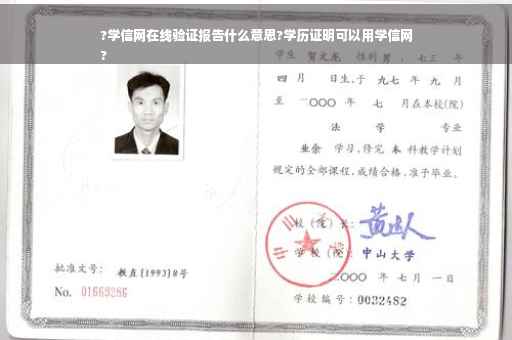 ?学信网在线验证报告什么意思?学历证明可以用学信网
?
学生 贺文龙 性别 男 、七三 年
四 月 日生,于 九七 年 九 月
至 二〇〇〇 年 七 月在本校(院)
法 学 专业
业余 学习,修完 本 科教学计划
规定的全部课程,成绩合格,准予毕业。
校(院)长:
学校(院): 中山大学
二〇〇〇 年 七 月 一 日
批准文号: 教直(1993)8号
No. 01669286
学校编号:0032482
中山大学